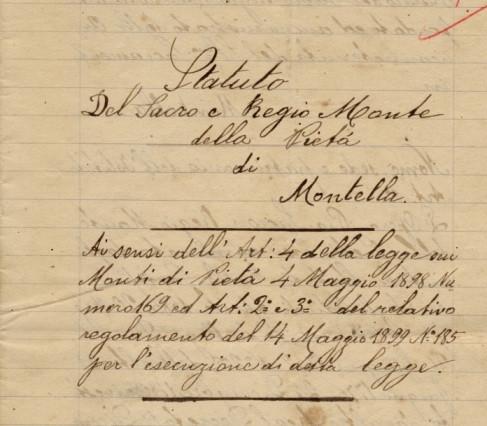 Statuto
Del Sacro e Regio Monte
della Pietá
di
Montella.
Ai sensi dell' Art: 4 della legge sui
Monti di Pietá 4 Maggio 1898 Nu
mero 169 ed Art: 2º e 3º del relativo
regolamento del 14 Maggio 1899 Nº 185
per l'esecuzione di detta legge.